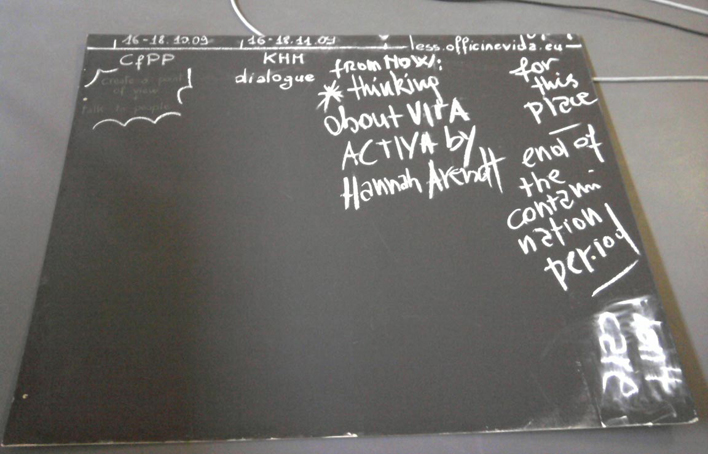 16-18.10.09
16-18.11.09
less.officinevida.eu
CfPP
Create a point
of view
talk to people
KHM
dialogue
from NOW:
* thinking
about VITA
ACTIVA by
Hannah Arendt
for
this
place
—
end of
the
contami
nation
period